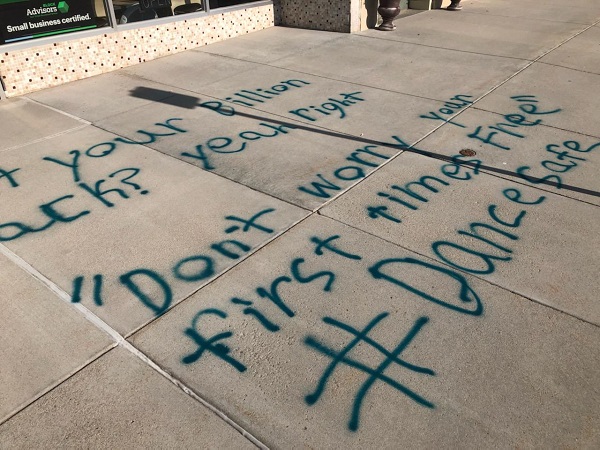 BLOCK
Advisors
Small business certified.
t your Billion
ack? yeah right
"Don't worry your
first times Free"
#DanceSafe